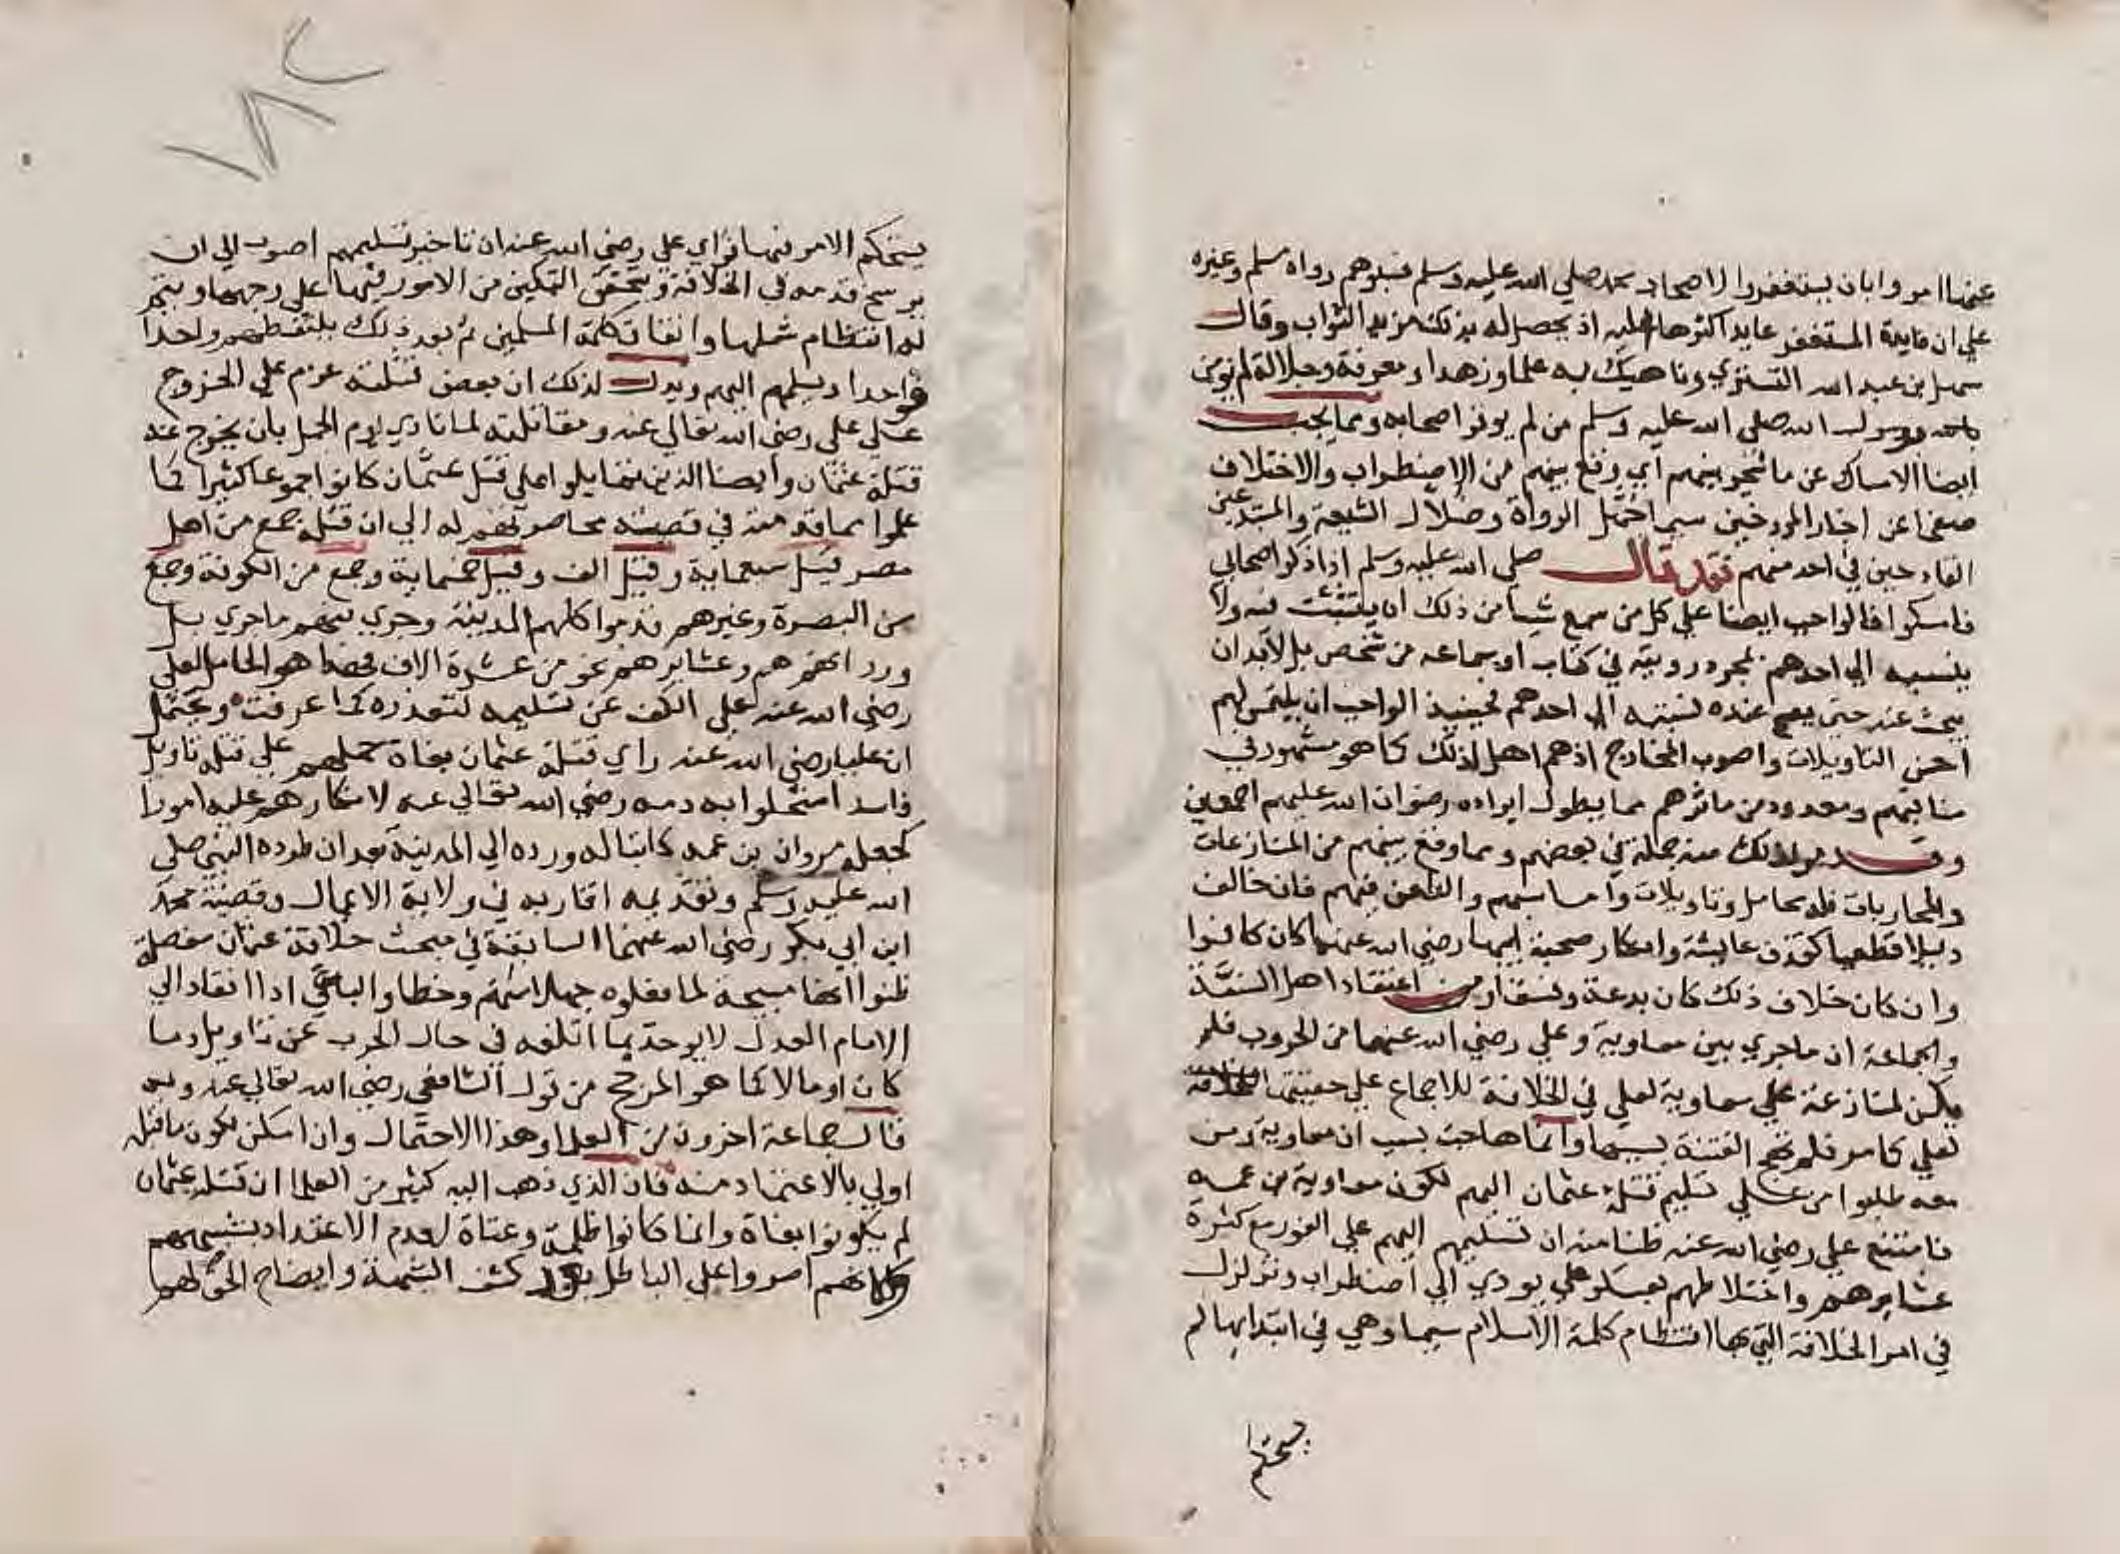 عنها امروا بان يستغفروا لاصحاب محمد صلي الله عليه وسلم فسبوهم رواه مسلم وغيره
علي ان فايدة المستغفر عايد اكثرها اليه اذ يحصل له بذلك مزيد الثواب وقال
سهل بن عبد الله التستري وناهيك به علما وزهدا ومعرفة وجلالة لم يومن
برسول الله صلي الله عليه وسلم من لم يوقر اصحابه ومما يجب
ايضا الامساك عن ما شجر بينهم اي وقع بينهم من الاضطراب والاختلاف
صفحا عن اخبار المورخين سيما جهلة الرواة وضلال الشيعة والمبتدعين
القادحين في احد منهم فقد قال صلي الله عليه وسلم اذا ذكر اصحابي
فامسكوا فالواجب ايضا علي كل من سمع شيا من ذلك ان يتثبت فيه ولا
ينسبه الي احدهم بمجرد روية في كتاب او سماعه من شخص بل لابد ان
يبحث عنه حتي يصح عنده نسبته الي احدهم فحينيذ الواجب ان يلتمس لهم
احسن التاويلات واصوب المخارج اذ هم اهل لذلك كما هو مشهور في
مناقبهم ومعدود من ماثرهم مما يطول ايراده رضوان الله عليهم اجمعين
وقد مر لذلك منه جملة في بعضهم وما وقع بينهم من المنازعات
والمحاربات فله محامل وتاويلات واما سبهم والطعن فيهم فان خالف
دليلا قطعيا كقذف عايشة وانكار صحبة ابيها رضي الله عنهما كان كافرا
وان كان خلاف ذلك كان بدعة وفسقا ومن اعتقاد اهل السنة
والجماعة ان ماجري بين معاوية وعلي رضي الله عنهما من الحروب فلم
يكن لمنازعة معاوية لعلي في الخلافة للاجماع علي حقيتها
لعلي كما مر فلم تهج الفتنة بسببها وانما هاجت بسبب ان معاوية ومن
معه طلبوا من علي تسليم قتلة عثمان اليهم لكون معاوية بن عمه
فامتنع علي رضي الله عنه ظنا منه ان تسليمهم اليهم علي الفور مع كثرة
عشايرهم واختلاطهم بعسكر علي يودي الي اضطراب وتزلزل
في امر الخلافة التي بها انتظام كلمة الاسلام سيما وهي في ابتدايها لم
يستحكم
١٨٢
يستحكم الامر فيها فراي علي رضي الله عنه ان تاخير تسليمهم اصوب الي ان
يرسخ قدمه في الخلافة ويتحقق التمكين من الامور فيها علي وجهها ويتم
له انتظام شملها واتفاق كلمة المسلمين ثم بعد ذلك يلتقطهم واحدا
فواحدا ويسلمهم اليهم ويدل لذلك ان بعض قتلته عزم علي الخروج
علي علي رضي الله تعالي عنه ومقاتلته لما نادي يوم الجمل بان يخرج عنه
قتلة عثمان وايضا الذين تمايلوا علي قتل عثمان كانوا جموعا كثيرا كما
علموا مما قدمته في قصته محاصرتهم له الي ان قتله جمع من اهل
مصر قيل سبعماية وقيل الف وقيل خمسماية وجمع من الكوفة وجمع
من البصرة وغيرهم قدموا كلهم المدينة وجري بينهم ماجري بل
ورد انهم هم وعشايرهم نحو من عشرة الاف فهذا هو الحامل لعلي
رضي الله عنه علي الكف عن تسليمه لتعذره كما عرفت ويحتمل
ان عليا رضي الله عنه راي قتلة عثمان بغاة حملهم علي قتله تاويل
فاسد استحلوا به دمه رضي الله تعالي عنه لانكارهم عليه امورا
كجعله مروان بن عمه كاتبا له ورده الي المدينة بعد ان طرده النبي صلي
الله عليه وسلم وتقديمه اقاربه في ولاية الاعمال وقضية محمد
ابن ابي بكر رضي الله عنهما السابقة في مبحث خلافة عثمان مفصلة
ظنوا انها مبيحة لما فعلوه جهلا منهم وخطا والباغي اذا انقاد الي
الامام العدل لا يوخذ بما اتلفه في حال الحرب عن تاويل دما
كان او مالا كما هو المرجح من قول الشافعي رضي الله تعالي عنه وبه
قال جماعة اخرون من العلما وهذا الاحتمال وان امكن لكون ماقبله
اولي بالاعتماد منه فان الذي ذهب اليه كثير من العلما ان قتلة عثمان
لم يكونوا بغاة وانما كانوا ظلمة وعتاة لعدم الاعتداد بشبههم
ولانهم اصروا علي الباطل بعد كشف الشبهة وايضاح الحق لهم